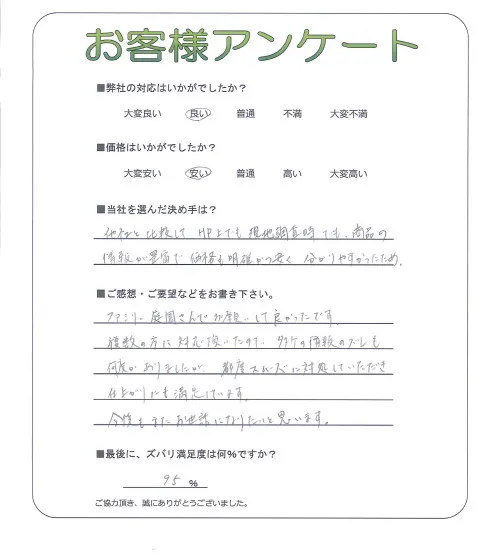 お客様アンケート
■弊社の対応はいかがでしたか？
大変良い 良い 普通 不満 大変不満
■価格はいかがでしたか？
大変安い 安い 普通 高い 大変高い
■当社を選んだ決め手は？
他社と比較して HP上でも現地調査時でも、商品の
情報が豊富で価格も明確かつ安く 分かりやすかったため。
■ご感想・ご要望などをお書き下さい。
ファミリー庭園さんでお願いして良かったです。
複数の方に対応頂いたので、 情報のズレも
何度かありましたが、都度スムーズに対処していただき
仕上がりにも満足しています。
今後もまたお世話になりたいと思います。
■最後に、ズバリ満足度は何％ですか？
95 ％
ご協力頂き、誠にありがとうございました。